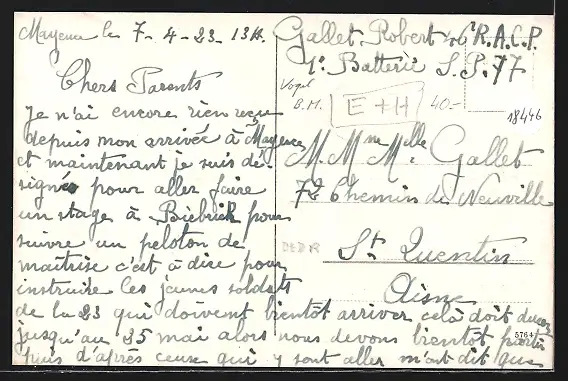 Mayence le 7-4-23. 13H.
Chers Parents
Je n'ai encore rien reçu
depuis mon arrivée à Mayence
et maintenant je suis dé-
signé pour aller faire
un stage à Biebrich pour
suivre un peloton de
maitrise c'est à dire pour
instruire les jeunes soldats
de la 23 qui doivent bientôt arriver celà doit durer
jusqu'au 25 mai alors nous devons bientôt partir
puis d'après ceux qui y sont aller m'ont dit que
Gallet Robert 46e R.A.C.P.
1e Batterie S.P. 77
Vogel
B.M.
E + H
40-
18446
M. Mme Mlle Gallet
72 Chemin de Neuville
St Quentin
Aisne